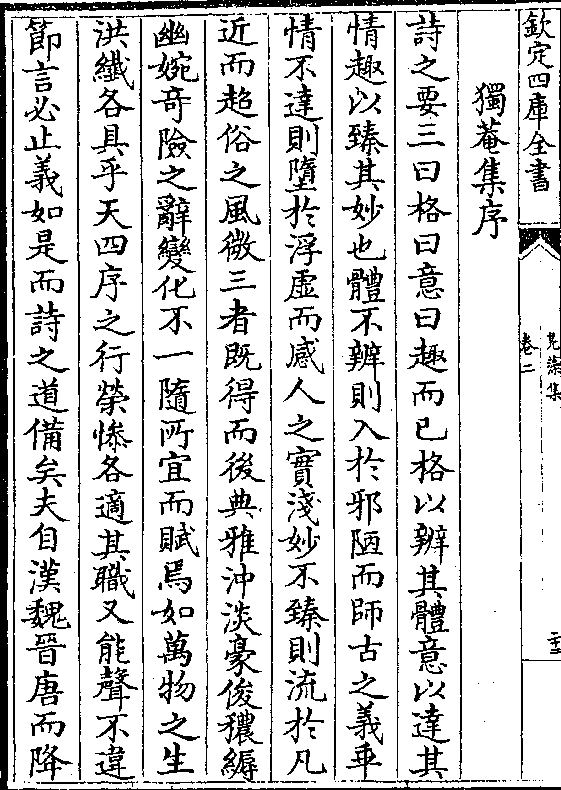 欽定四庫全書
鳧藻集
卷二
獨菴集序
詩之要三曰格曰意曰趣而已格以辨其體意以達其
情趣以臻其妙也體不辨則入於邪陋而師古之義乖
情不達則墮於浮虛而感人之實淺妙不臻則流於凡
近而超俗之風微三者既得而後典雅沖淡豪俊穠縟
幽婉奇險之辭變化不一隨所宜而賦焉如萬物之生
洪纖各具乎天四序之行榮慘各適其職又能聲不違
節言必止義如是而詩之道備矣夫自漢魏晉唐而降